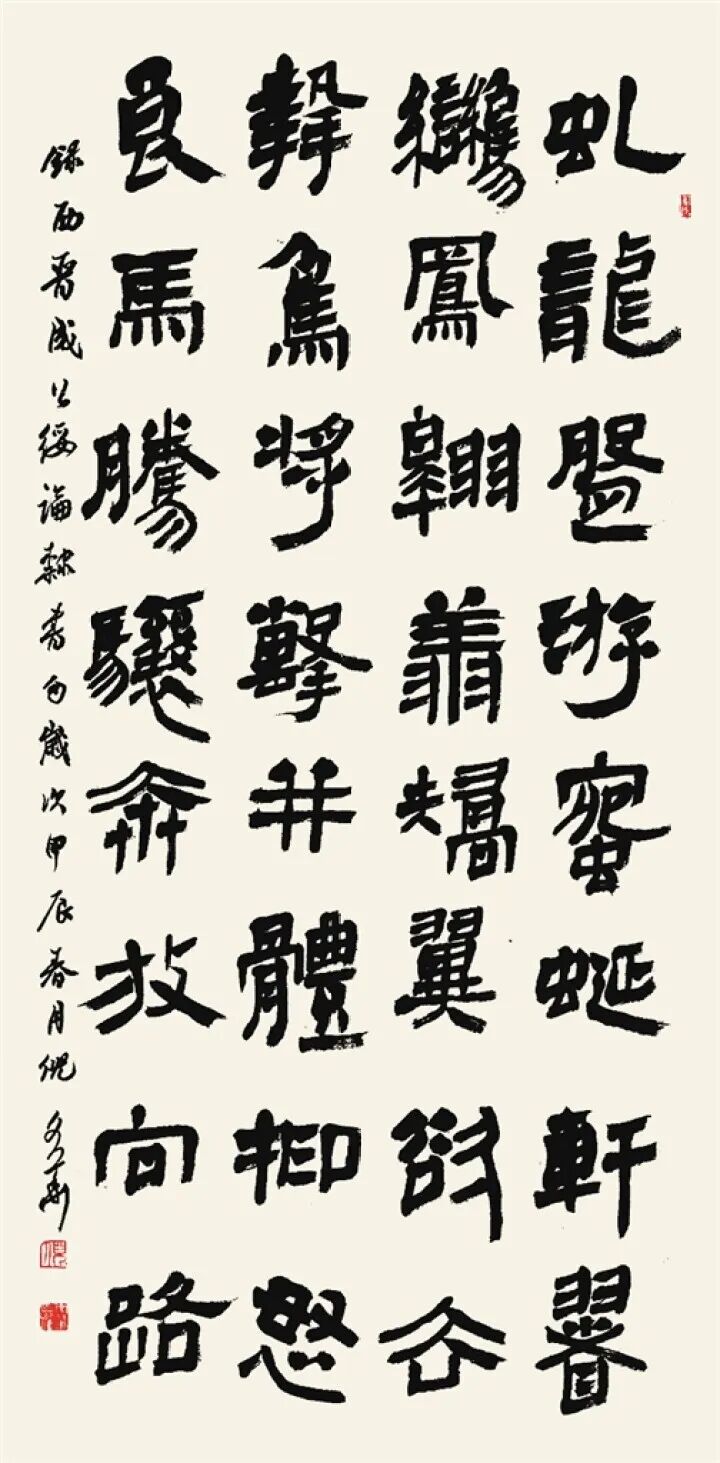 虬龍盤游蜿蜒軒翥
鸞鳳翱翔矯翼欲去
鷙鳥將擊并體抑怒
良馬騰驤奔放向路
錄西晉成公綏論隸書句歲次甲辰春月倪文華